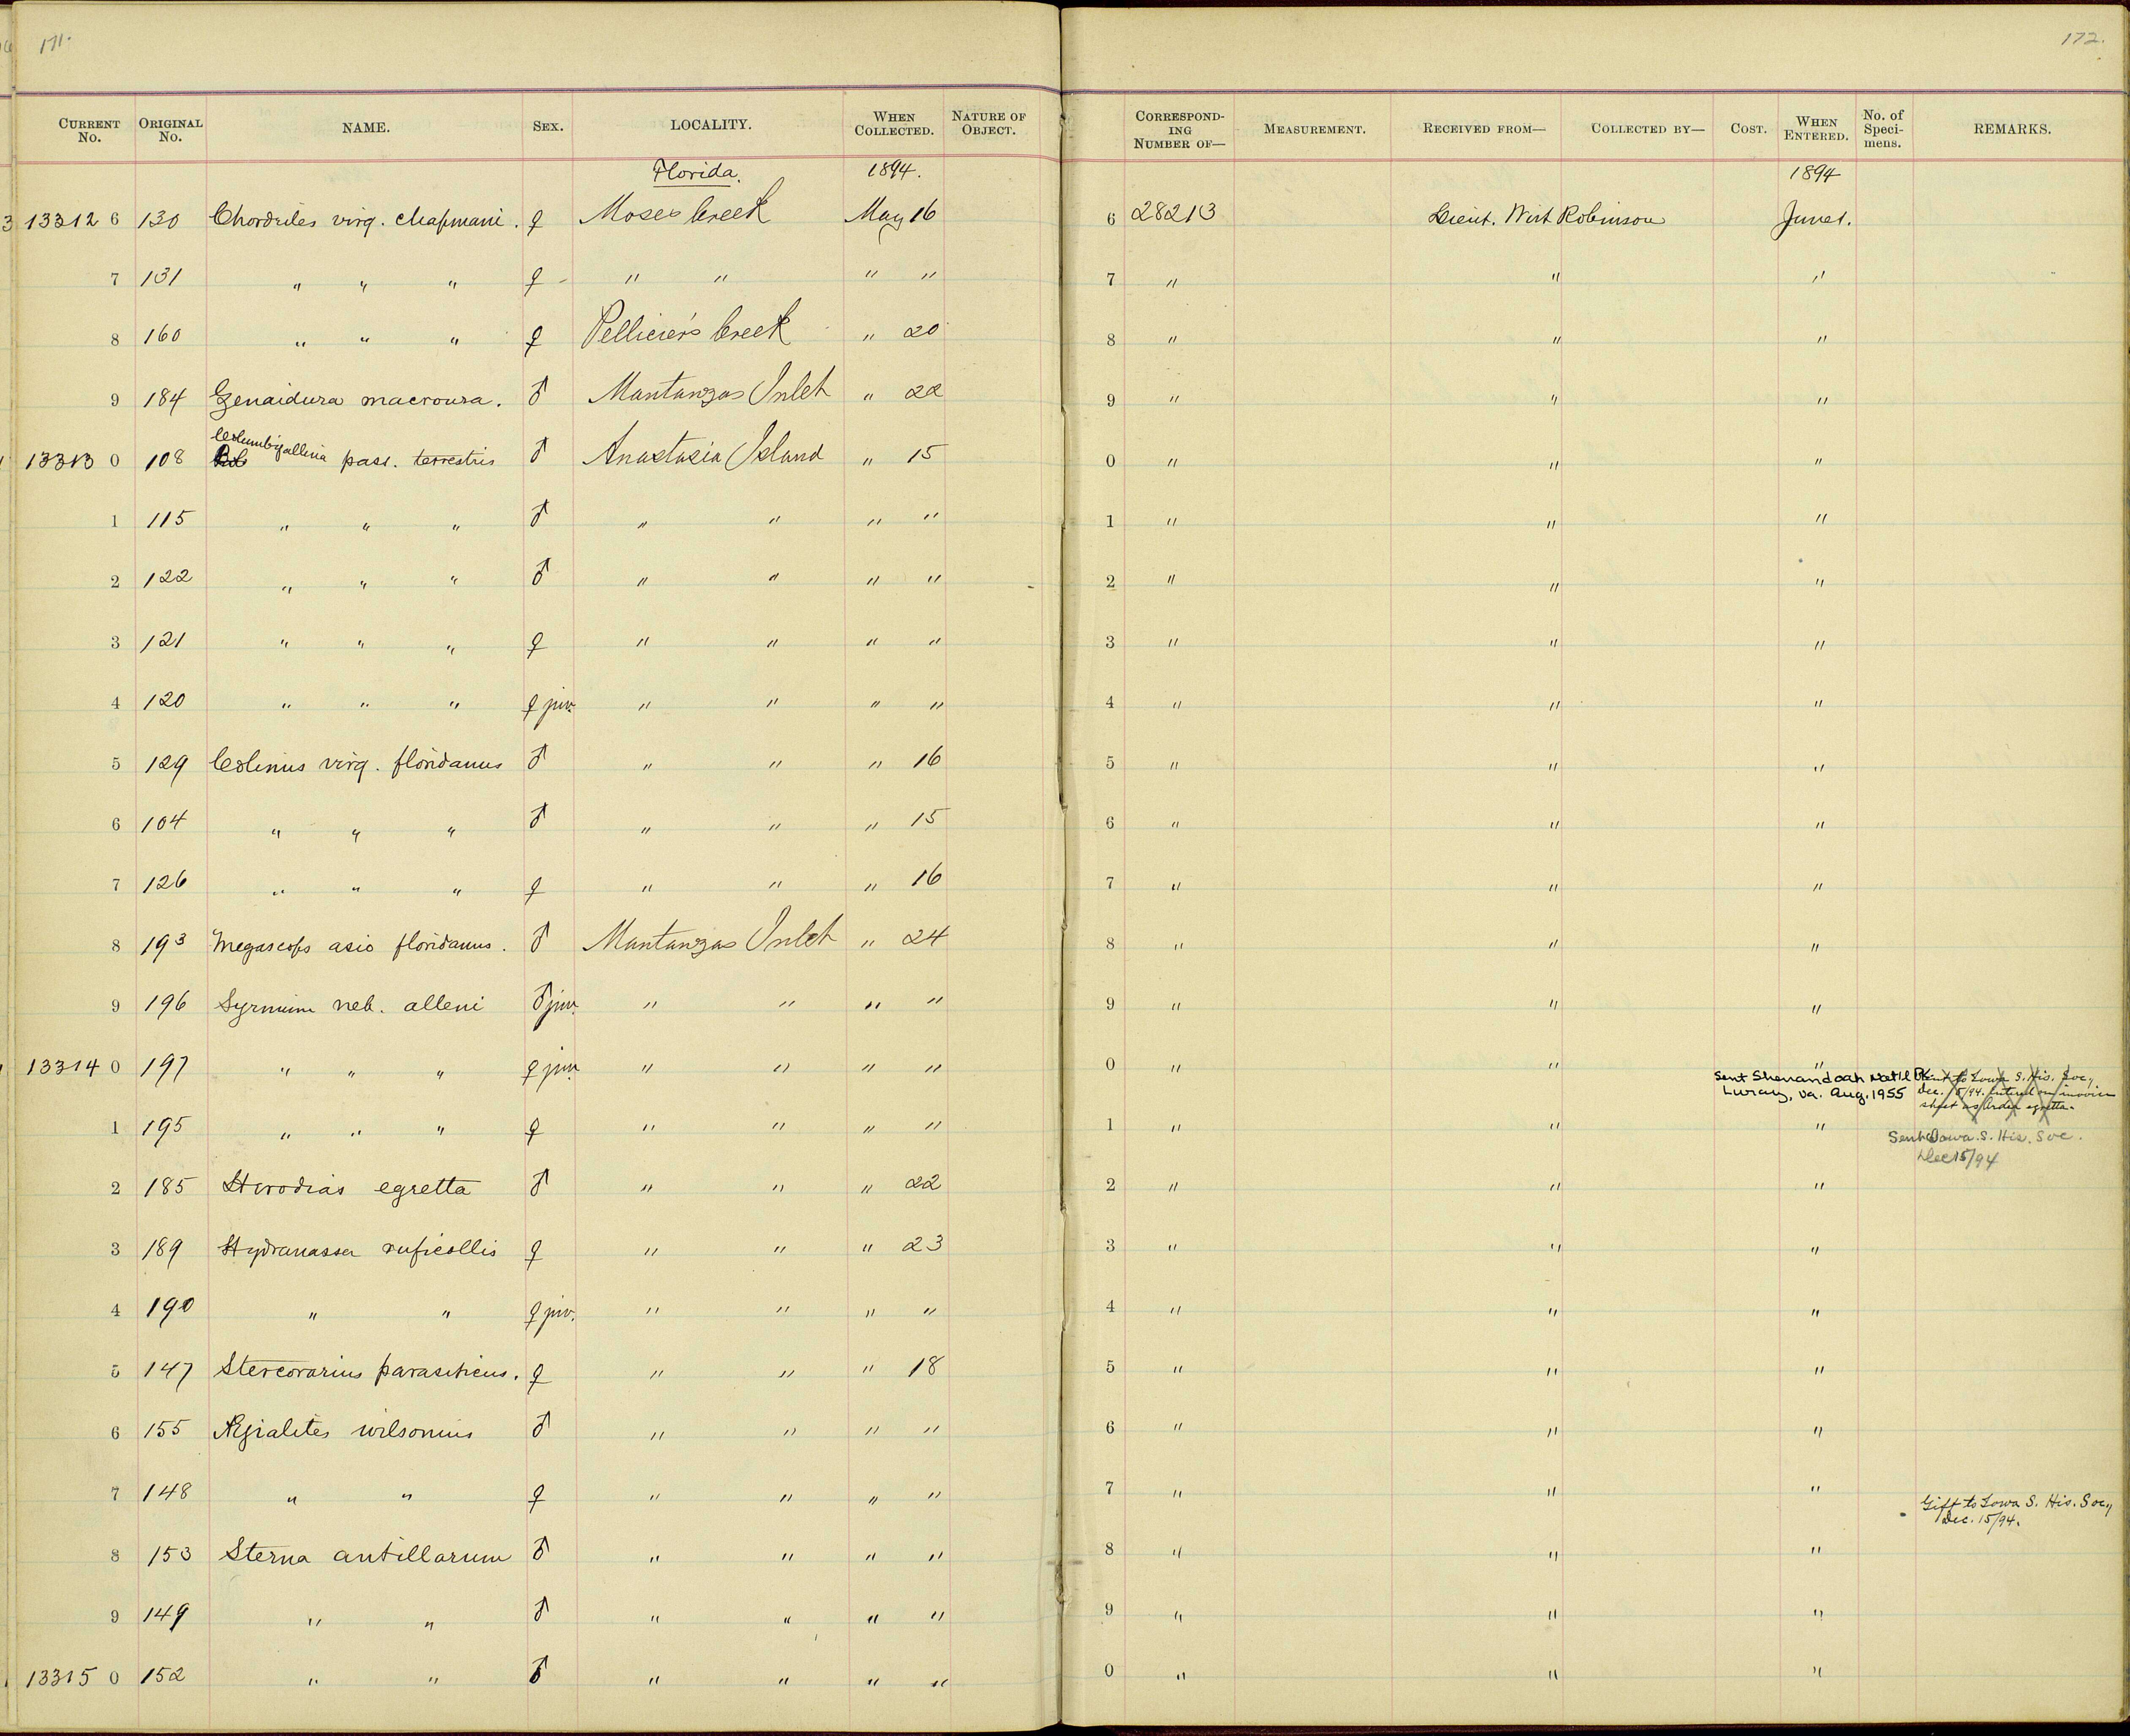 171.
CURRENT No. ORIGINAL No. NAME. SEX. LOCALITY. WHEN COLLECTED. NATURE OF OBJECT.
Florida. 1894.
13312 6 130 Chordeiles virg. chapmani. ♀ Moses Creek May 16
7 131 " " " ♀ " " " "
8 160 " " " ♀ Pellicier's Creek " 20
9 184 Zenaidura macroura. ♂ Mantanzas Inlet " 22
13313 0 108 Columbigallina pass. terrestris ♂ Anastasia Island " 15
1 115 " " " ♂ " " " "
2 122 " " " ♂ " " " "
3 121 " " " ♀ " " " "
4 120 " " " ♀ juv. " " " "
5 129 Colinus virg. floridanus ♂ " " " 16
6 104 " " " ♂ " " " 15
7 126 " " " ♀ " " " 16
8 193 Megascops asio floridanus. ♂ Mantanzas Inlet " 24
9 196 Syrnium neb. alleni ♂ juv. " " " "
13314 0 197 " " " ♀ juv. " " " "
1 195 " " " ♀ " " " "
2 185 Herodias egretta ♂ " " " 22
3 189 Hydranassa ruficollis ♀ " " " 23
4 190 " " ♀ juv. " " " "
5 147 Stercorarius parasiticus. ♀ " " " 18
6 155 Ægialites wilsonius ♂ " " " "
7 148 " " ♀ " " " "
8 153 Sterna antillarum ♂ " " " "
9 149 " " ♂ " " " "
13315 0 152 " " ♂ " " " "
172.
CORRESPONDING NUMBER OF— MEASUREMENT. RECEIVED FROM— COLLECTED BY— COST. WHEN ENTERED. No. of Specimens. REMARKS.
1894
6 28213 Lieut. Wirt Robinson June 1.
7 " " "
8 " " "
9 " " "
0 " " "
1 " " "
2 " " "
3 " " "
4 " " "
5 " " "
6 " " "
7 " " "
8 " " "
9 " " "
0 " " "
Sent Shenandoah Nat'l Pk. Sent to Iowa S. His. Soc.,
Luray, Va. Aug. 1955 Dec. 15/94. on invoice
sheet as Ardea egretta.
1 " " "
Sent Iowa. S. His. Soc.
Dec 15/94
2 " " "
3 " " "
4 " " "
5 " " "
6 " " "
7 " " "
Gift to Iowa S. His. Soc.,
Dec. 15/94.
8 " " "
9 " " "
0 " " "